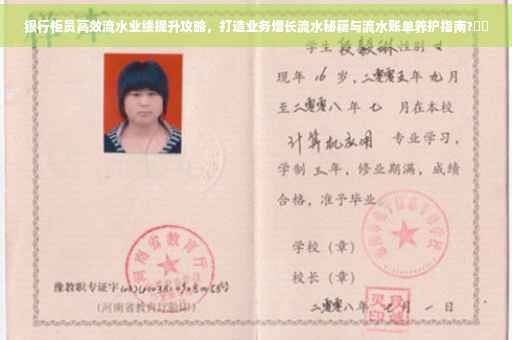 银行柜员高效流水业绩提升攻略，打造业务增长流水秘籍与流水账单养护指南?
学生 性别 女
现年 16 岁，二零零五年 九月
至二零零八 年 七 月在本校
计算机应用 专业学习，
学制 三 年，修业期满，成绩
合格，准予毕业
河南省教育厅
学校（章）
校长（章）
豫教职专证字
（河南省教育厅验印）
二零零八年 七 月 一 日